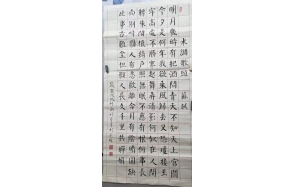 水調歌頭 蘇軾
明月幾時有把酒問青天不知天上宮闕
今夕是何年我欲乘風歸去又恐瓊樓玉
宇高處不勝寒起舞弄清影何似在人間
轉朱閣低綺戶照無眠不應有恨何事長
向別時圓人有悲歡離合月有陰晴圓缺
此事古難全但願人長久千里共嬋娟